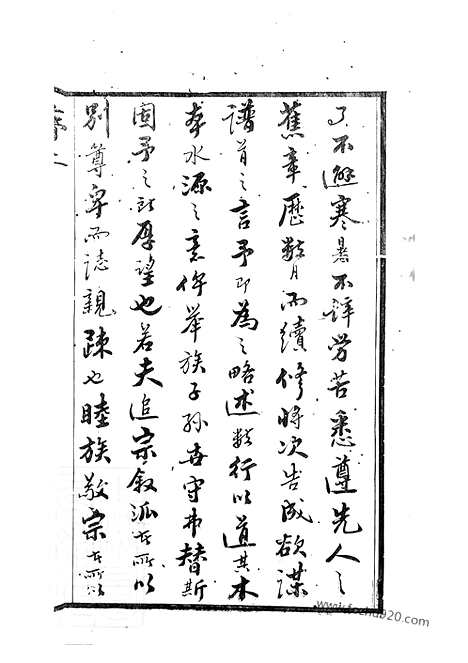 了不避寒暑不辞劳苦悉遵先人之
蕉章歷數月而續修將次告成欲謀
譜首之言予即為之略述數行以道其木
本水源之意俾举族子孙世守弗替斯
固予之所厚望也若夫追宗叙派者所以
别尊卑而誌親疎也睦族敬宗者所以
序二
www.fozhu920.com